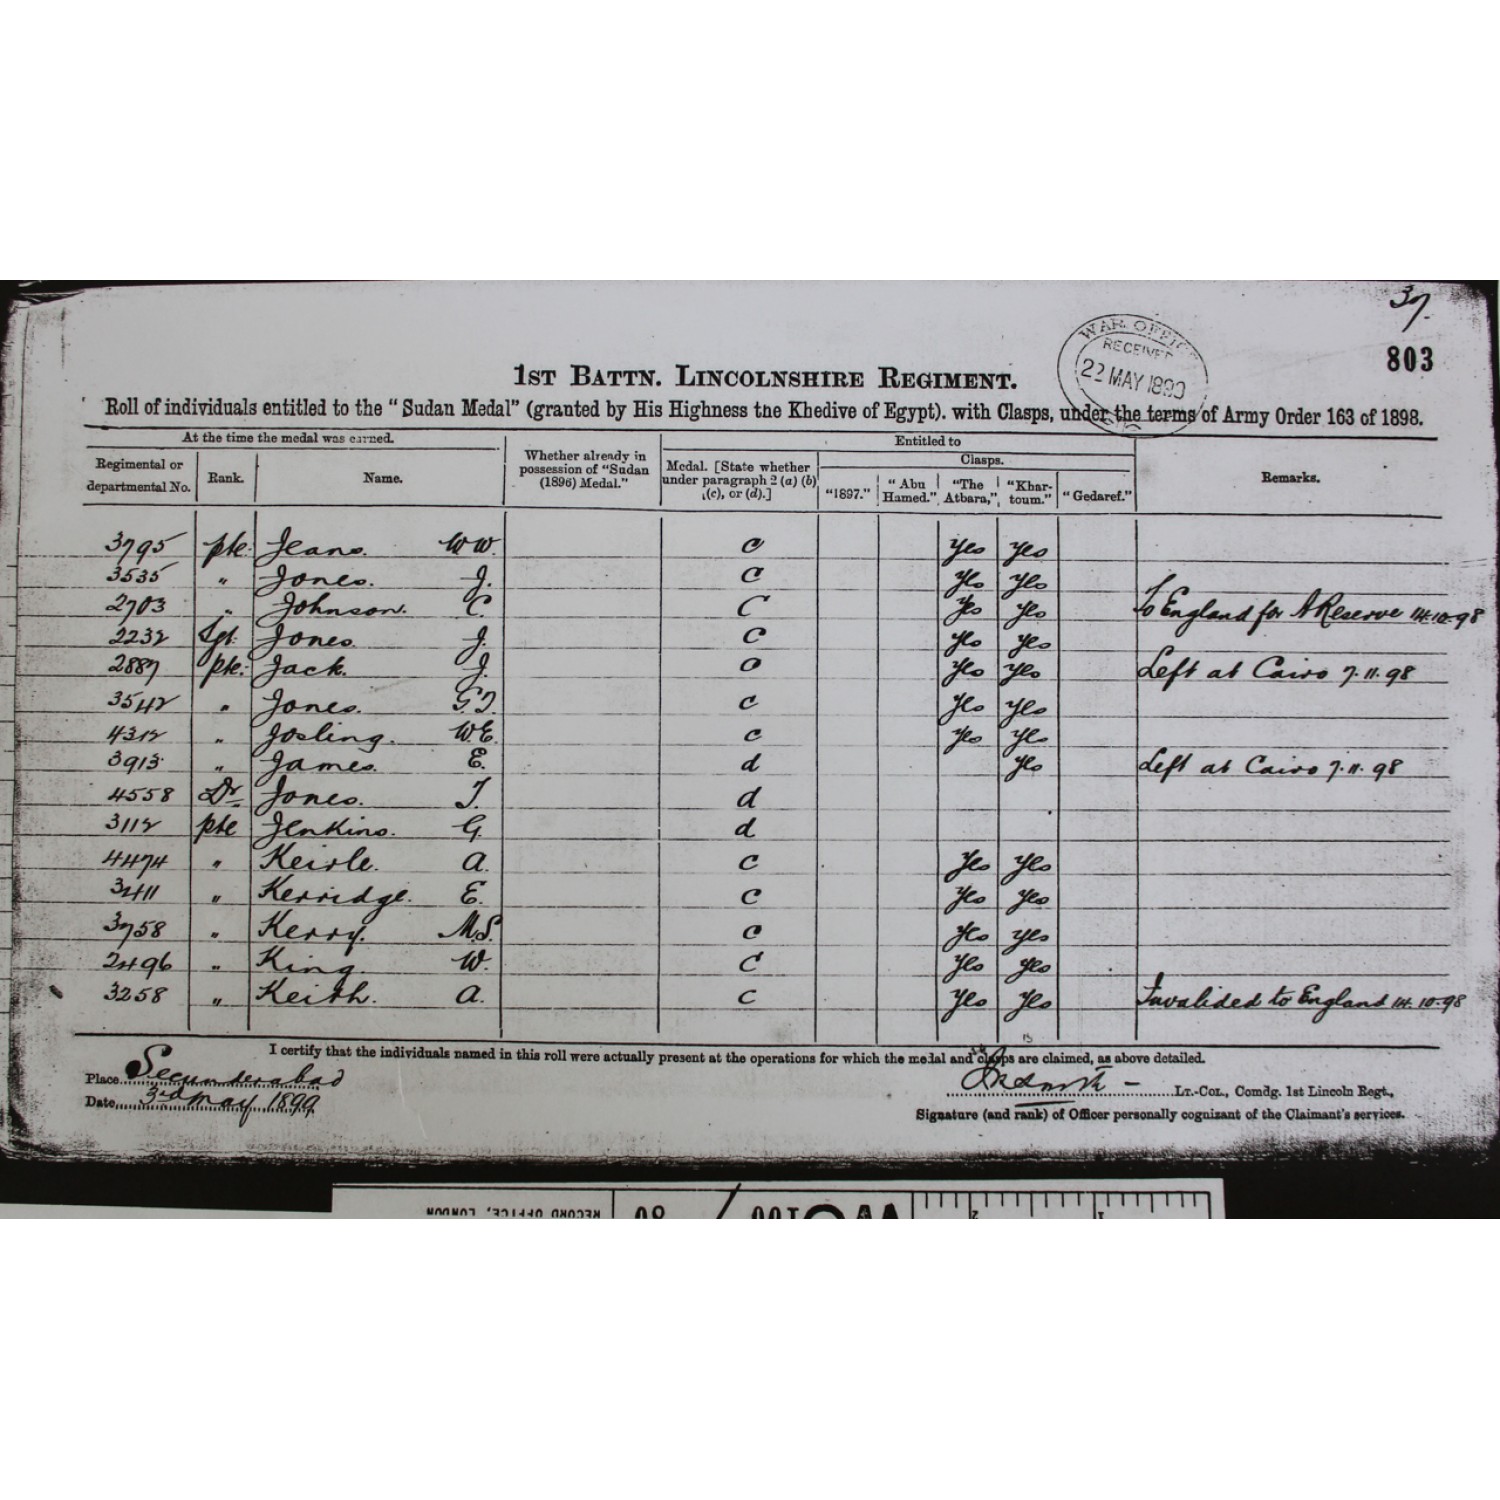 37.
WAR OFFICE
RECEIVED
22 MAY 1899
803
1ST BATTN. LINCOLNSHIRE REGIMENT.
Roll of individuals entitled to the "Sudan Medal" (granted by His Highness the Khedive of Egypt). with Clasps, under the terms of Army Order 163 of 1898.
At the time the medal was earned. Entitled to
Regimental or departmental No. Rank. Name. Whether already in possession of "Sudan (1896) Medal." Medal. [State whether under paragraph 2 (a) (b) (c), or (d).] Clasps. "1897." "Abu Hamed." "The Atbara," "Khar-toum." "Gedaref." Remarks.
3795 pte. Jeans. W.W. c Yes Yes
3535 " Jones. J. c Yes Yes
2703 " Johnson. C. C Yes Yes To England for A Reserve 14.10.98
2232 Sgt. Jones. J. c Yes Yes
2887 pte. Jack. J. c Yes Yes Left at Cairo 7.11.98
3542 " Jones. G.T. c Yes Yes
4312 " Josling. W.E. c Yes Yes
3913 " James. E. d Yes Left at Cairo 7.11.98
4558 Dr. Jones. T. d
3112 pte Jenkins. G. d
4474 " Keirle. A. c Yes Yes
3411 " Kerridge. E. c Yes Yes
3758 " Kerry. M.S. c Yes Yes
2496 " King. W. c Yes Yes
3258 " Keith. A. c Yes Yes Invalided to England 14.10.98
I certify that the individuals named in this roll were actually present at the operations for which the medal and clasps are claimed, as above detailed.
Place Secunderabad
LT.-COL., Comdg. 1st Lincoln Regt.,
Date 3rd May 1899
Signature (and rank) of Officer personally cognizant of the Claimant's services.
RECORD OFFICE, LONDON